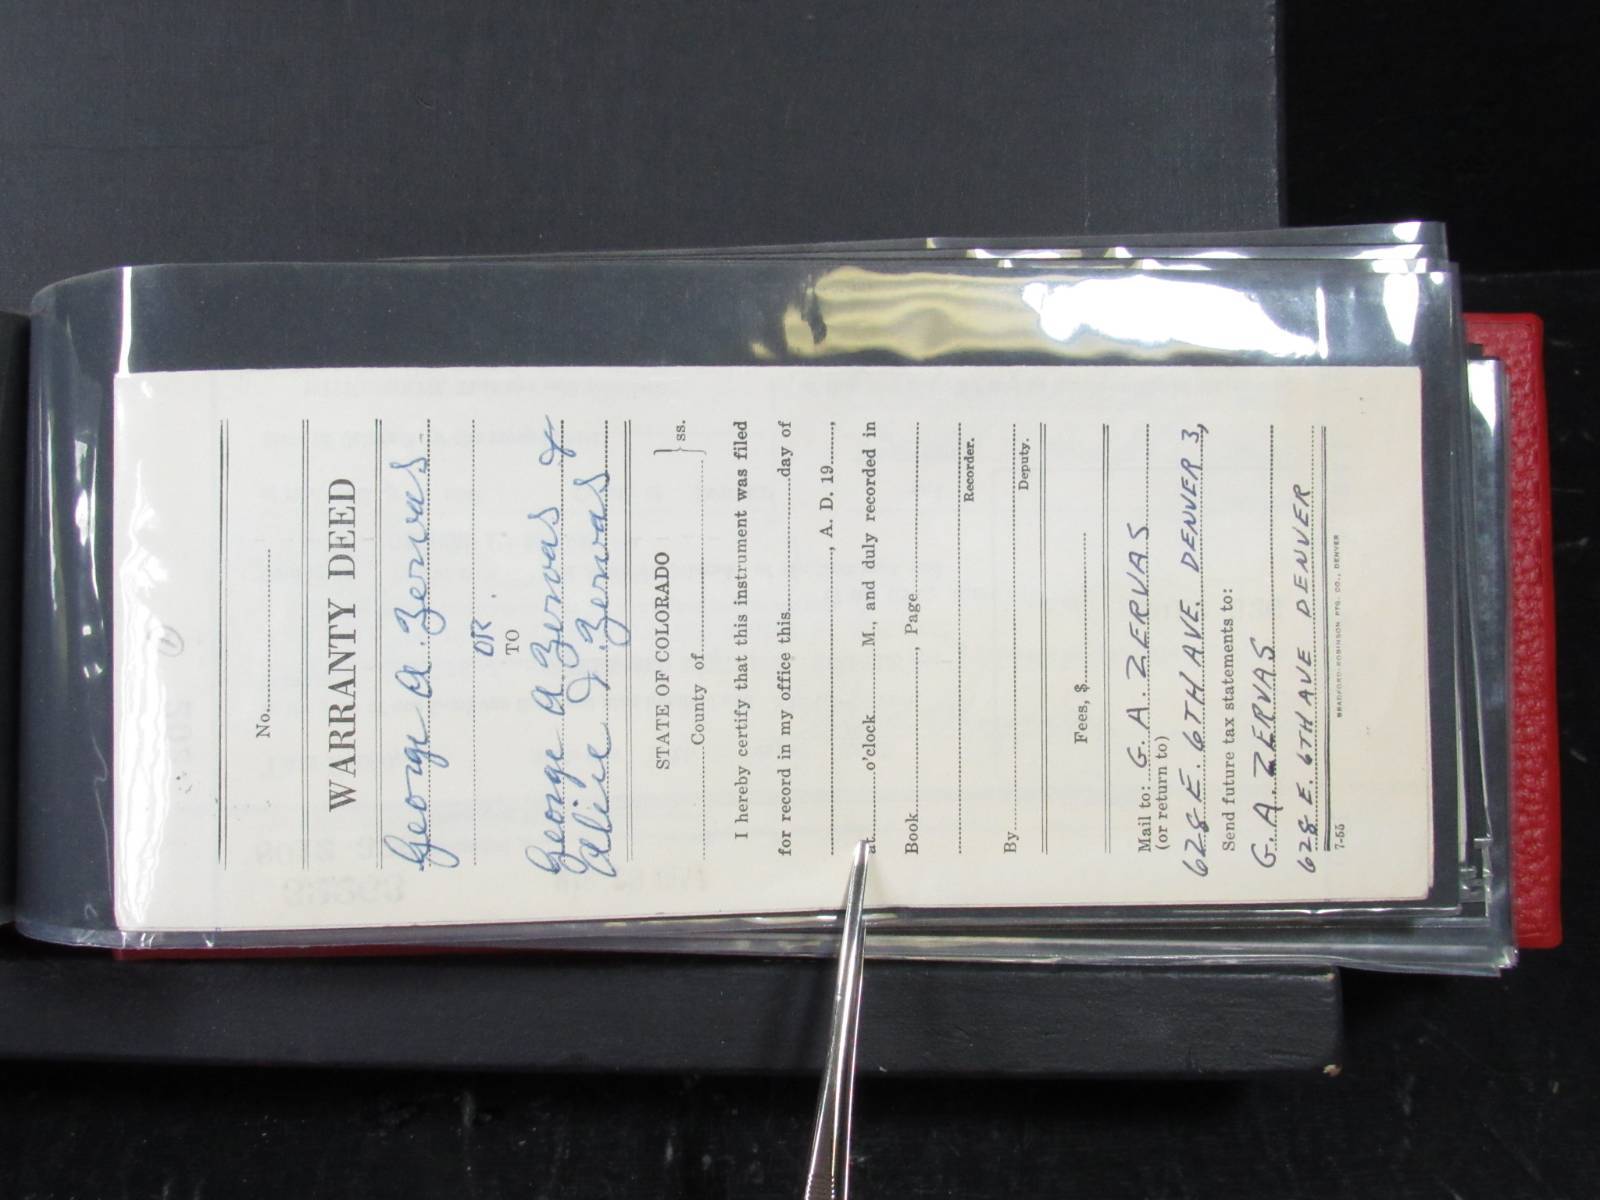 No.
WARRANTY DEED
George A. Zervas
OR.
TO
George A Zervas &
Alice J. Zervas
STATE OF COLORADO
County of
ss.
I hereby certify that this instrument was filed
for record in my office this day of
, A. D. 19 ,
at o'clock M., and duly recorded in
Book , Page
Recorder.
By
Deputy.
Fees, $
Mail to: G. A. ZERVAS
(or return to)
628 E. 6TH AVE. DENVER 3,
Send future tax statements to:
G. A. ZERVAS
628 E. 6TH AVE DENVER
7-55
BRADFORD-ROBINSON PTG. CO., DENVER